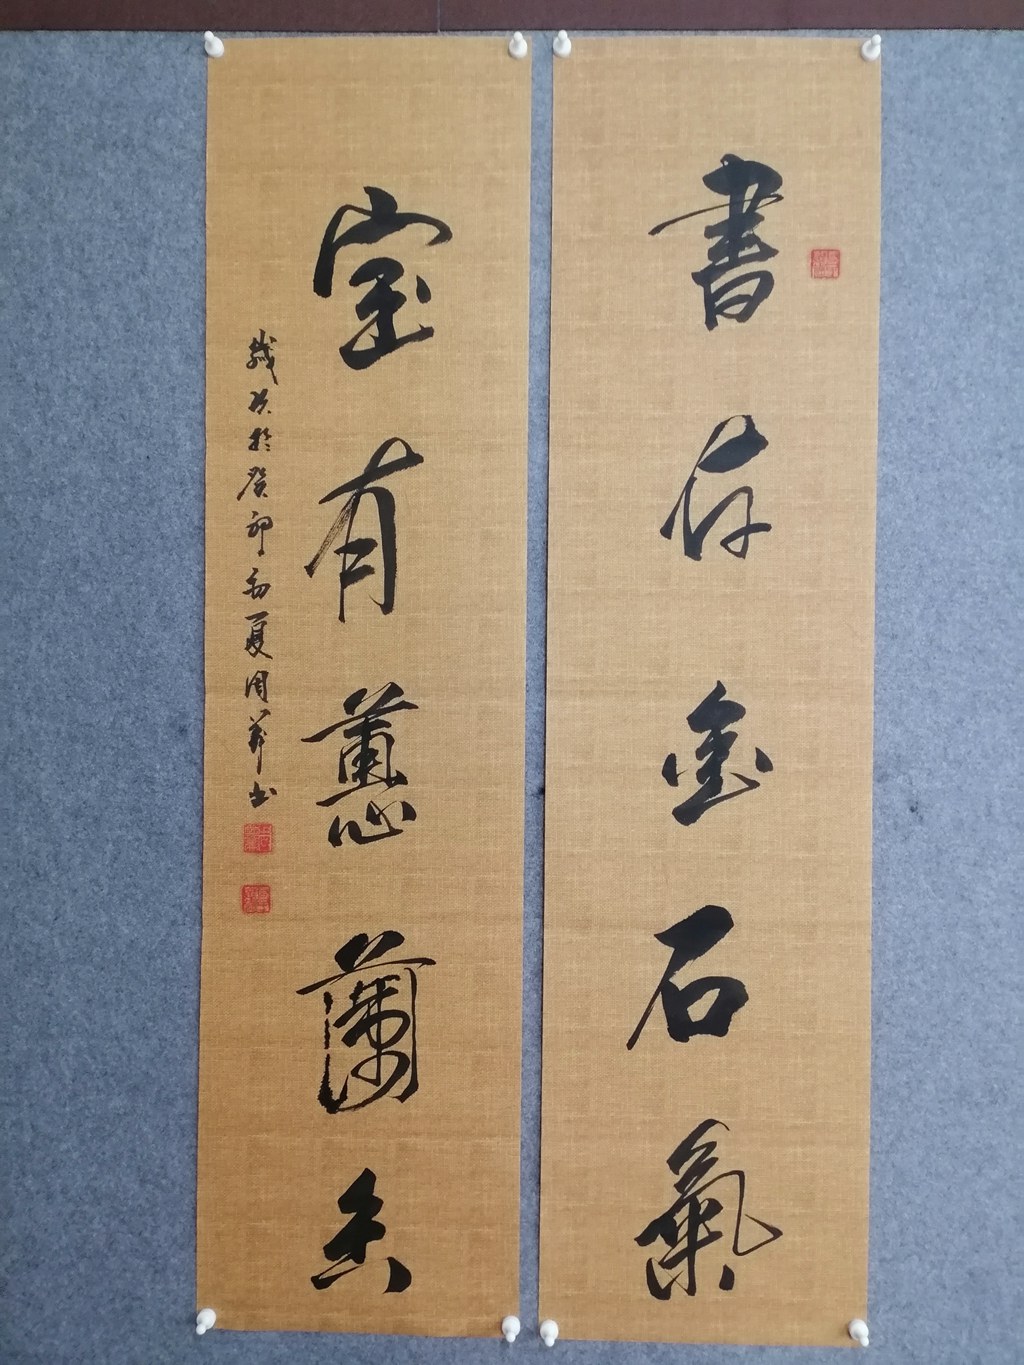 書存金石氣
室有蕙蘭香
歲次於癸卯初夏周華書